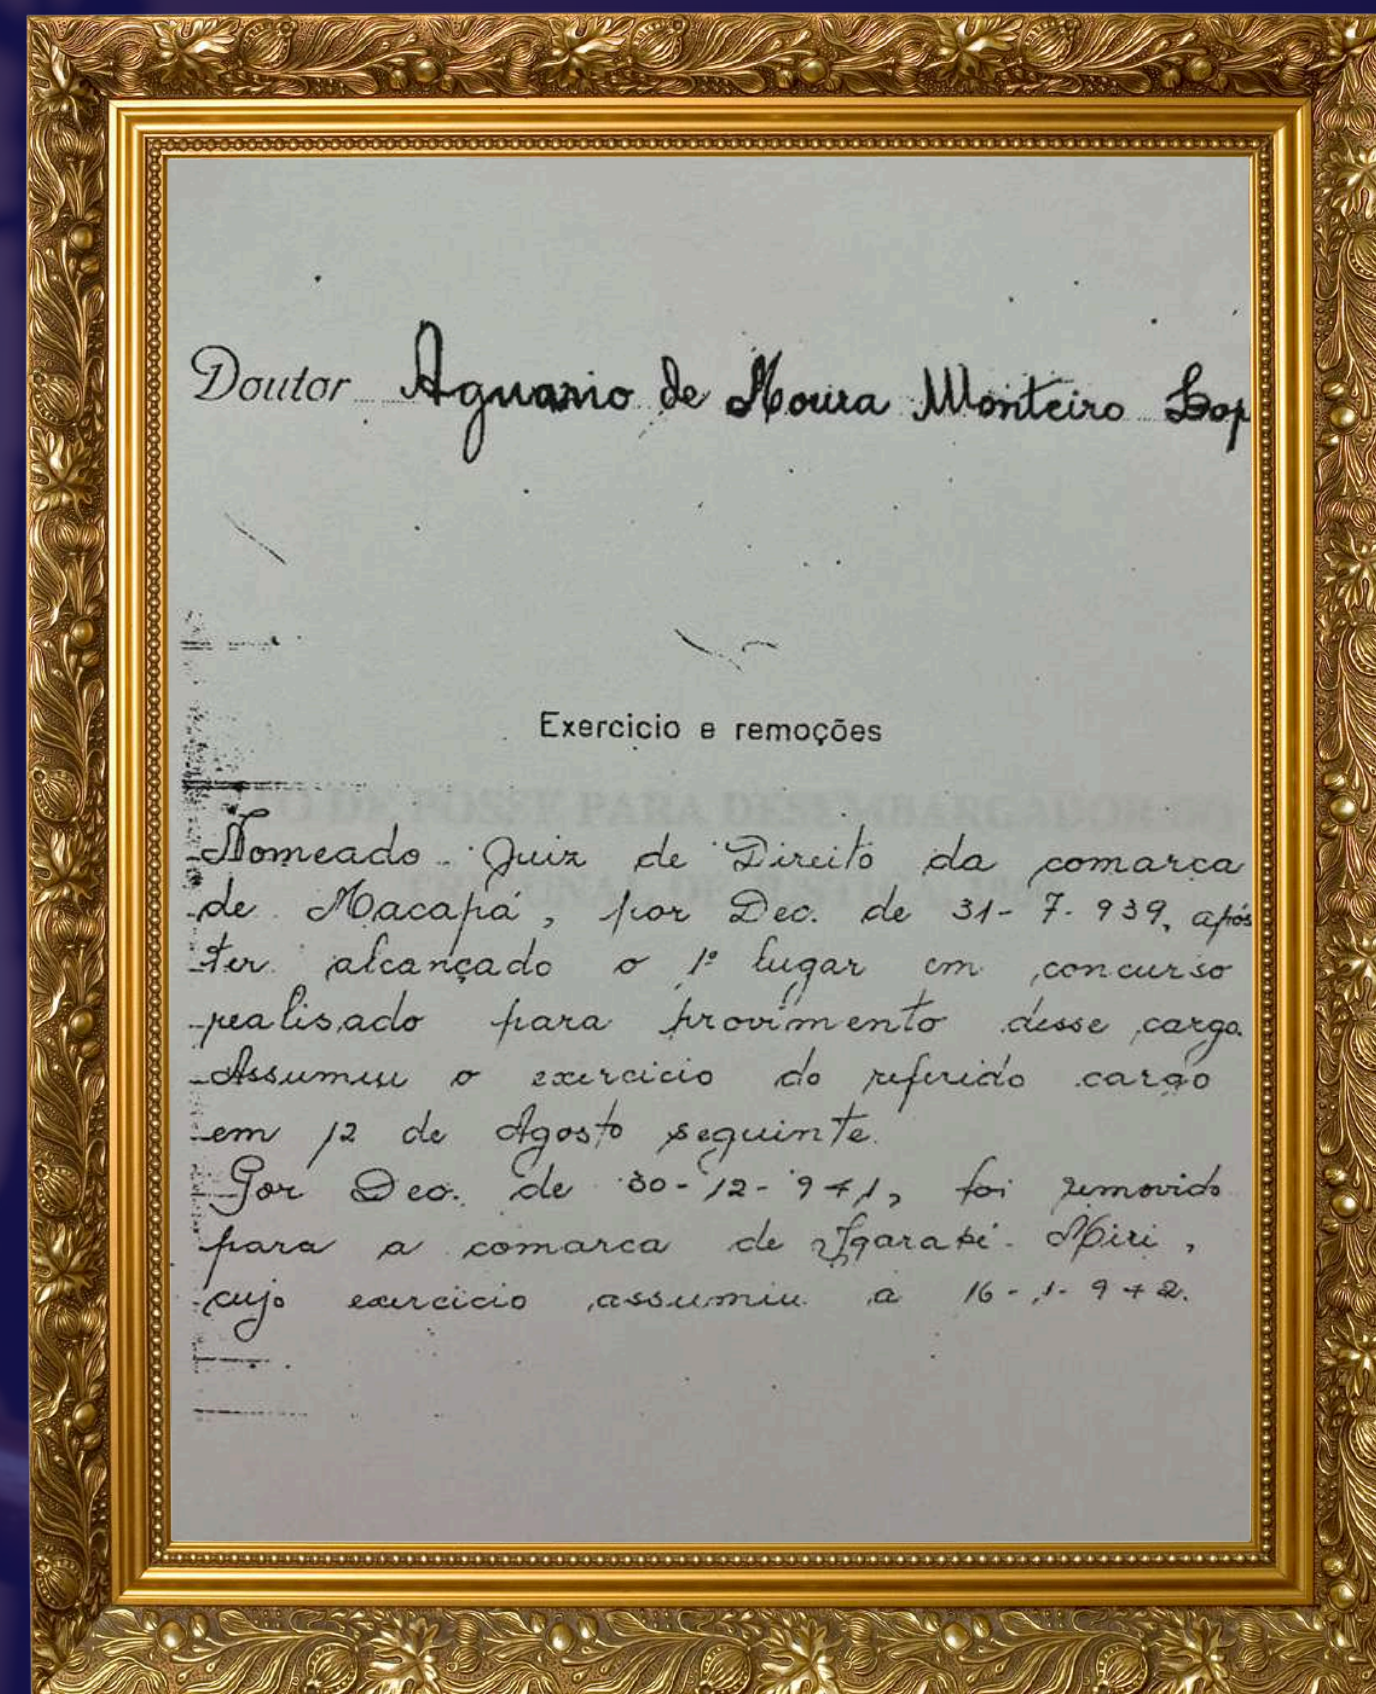 Doutor Aguario de Moura Monteiro Lop
Exercicio e remoções
Nomeado Juiz de Direito da comarca
de Macapá, por Dec. de 31-7-939, após
ter alcançado o 1º lugar em concurso
realisado para provimento desse cargo.
Assumiu o exercicio do referido cargo
em 12 de Agosto seguinte.
Por Dec. de 30-12-941, foi removido
para a comarca de Igarapé-Miri,
cujo exercicio assumiu a 16-1-942.